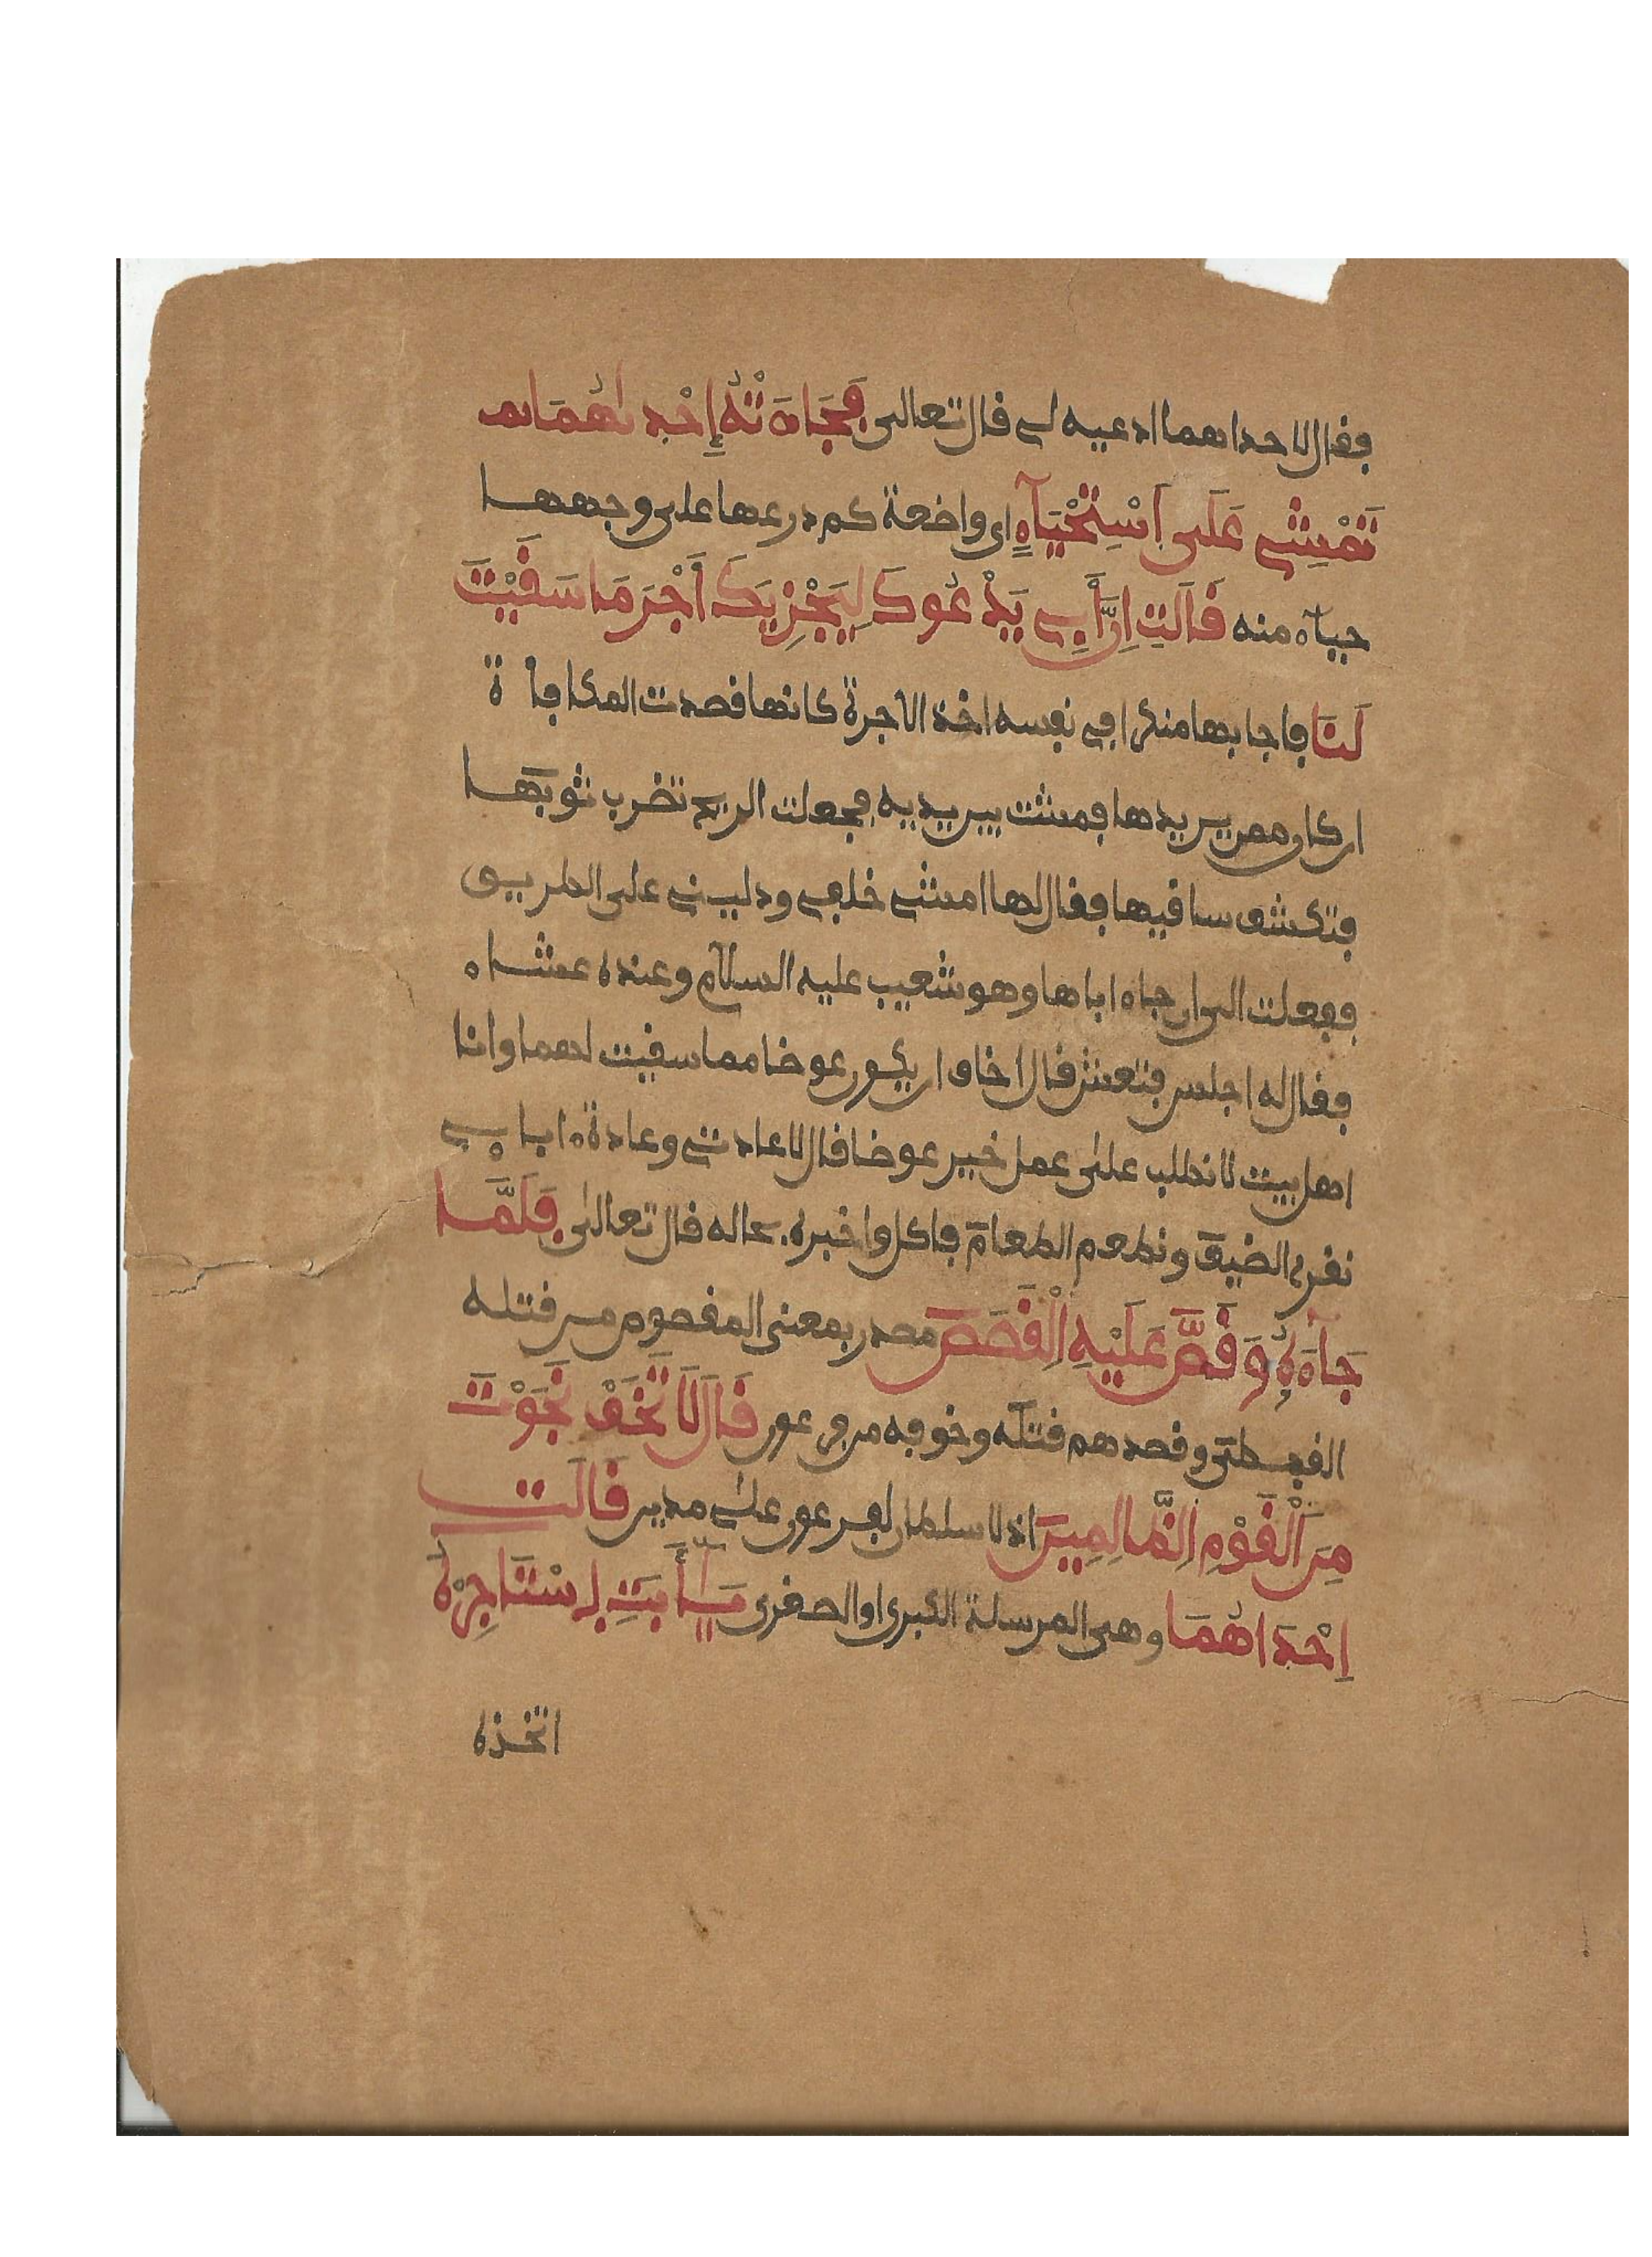 فقال لاحداهما ادعيه لي قال تعالى فَجَآءَتْهُ إِحْدٰىهُمَا تم
تَمْشِے عَلَى اَسْتِحْيَآءٍ اى واضعة كم درعها على وجهها
حيآء منه قَالَتِ اِنَّ أَبِے يَدْعُوكَ لِيَجْزِيَكَ أَجْرَ مَا سَقَيْتَ
لَنَا فاجابها منكرا في نفسه اخذ الاجرة كانها قصدت المكافأ ة
ان كان ممن يريدها فمشت بين يديه فجعلت الريح تضرب ثوبها
فتكشف ساقيها فقال لها امشے خلفے ودلينے على الطريق
ففعلت الى ان جاء اباها وهو شعيب عليه السلام وعنده عشاء
فقال له اجلس فتعش قال اخاف ان يكون عوضا مما سقيت لهما وانا
اهل بيت لا نطلب على عمل خير عوضا قال لا عادتے وعادة ءابا ءے
نقرى الضيف ونطعم الطعام فاكل واخبره بحاله قال تعالى فَلَمَّا
جَآءَهُ وَقَصَّ عَلَيْهِ اِلْقَصَصَ مصدر بمعنى المقصوص من قتله
القبطى وقصدهم قتله وخوفه من فرعون قَالَ لَا تَخَفْ نَجَوْتَ
مِنَ اَلْقَوْمِ اِلظَّالِمِينَ اذ لا سلطان لفرعون على مدين قَالَتِ
اِحْدَاهُمَا وهى المرسلة الكبرى او الصغرى يَآأَبَتِ اِسْتَاجِرْهُ
اتخذه